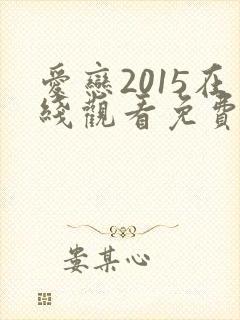 愛戀2015在
綫觀看免費
婁某心